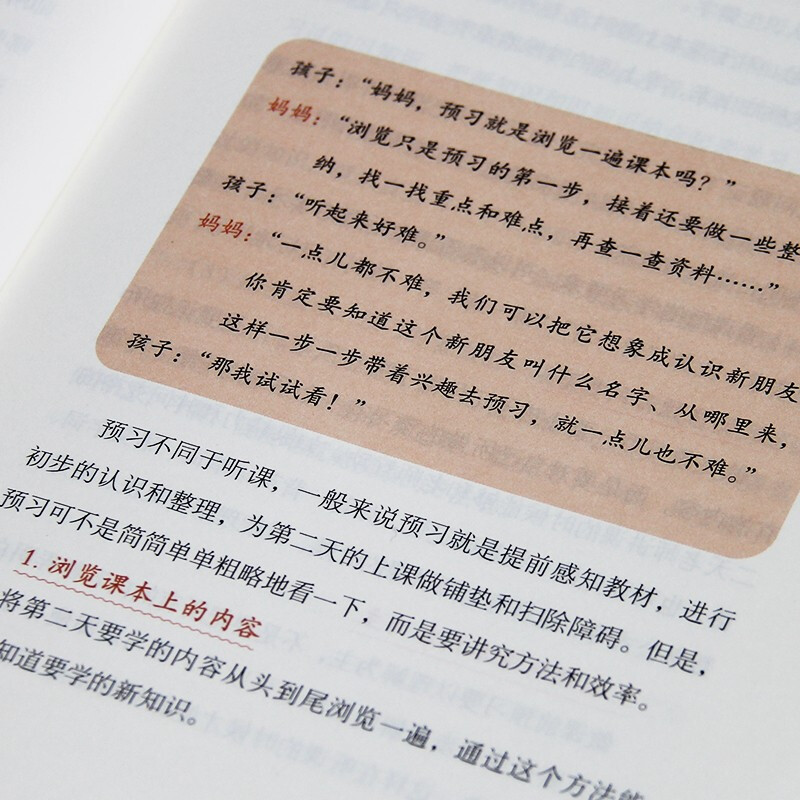 孩子：“妈妈，预习就是浏览一遍课本吗？”
妈妈：“浏览只是预习的第一步，接着还要做一些整
纳，找一找重点和难点，再查一查资料……”
孩子：“听起来好难。”
妈妈：“一点儿都不难，我们可以把它想象成认识新朋友
你肯定要知道这个新朋友叫什么名字、从哪里来，
这样一步一步带着兴趣去预习，就一点儿也不难。”
孩子：“那我试试看！”
预习不同于听课，一般来说预习就是提前感知教材，进行
初步的认识和整理，为第二天的上课做铺垫和扫除障碍。但是，
预习可不是简简单单粗略地看一下，而是要讲究方法和效率。
1. 浏览课本上的内容
将第二天要学的内容从头到尾浏览一遍，通过这个方法能
知道要学的新知识。